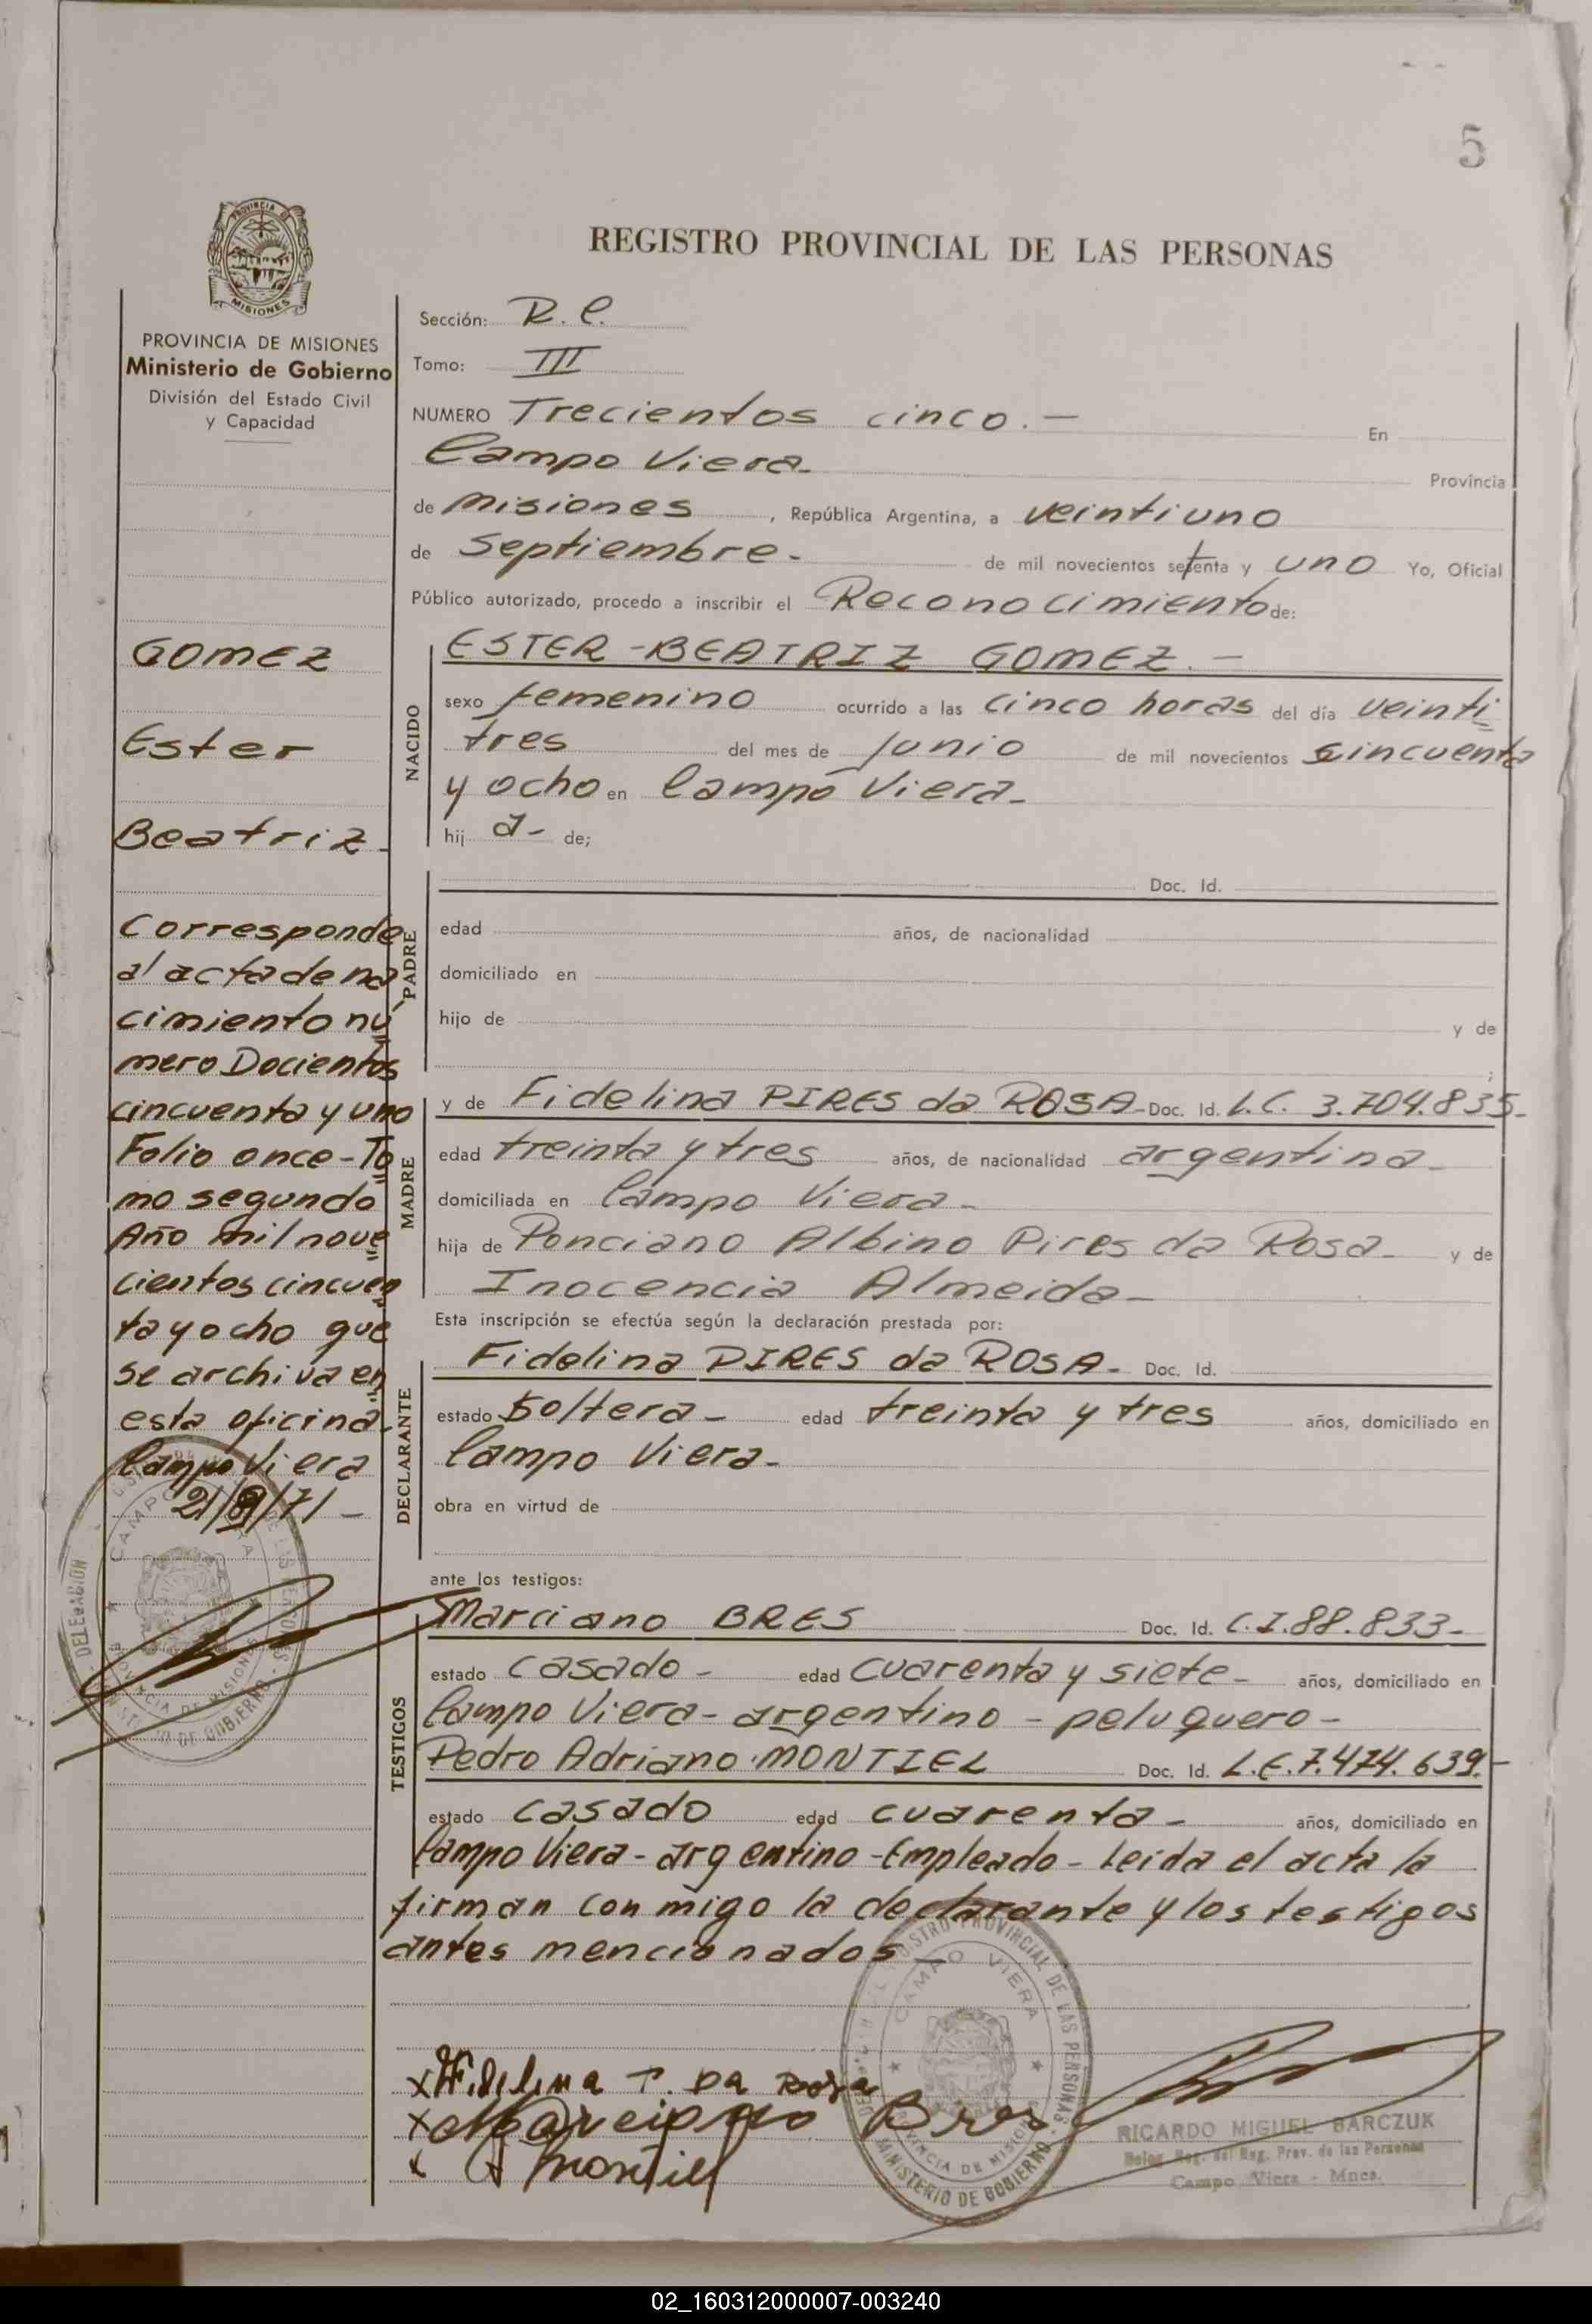 5
REGISTRO PROVINCIAL DE LAS PERSONAS
PROVINCIA DE
MISIONES
PROVINCIA DE MISIONES
Ministerio de Gobierno
División del Estado Civil
y Capacidad
GOMEZ
Ester
Beatriz-
Corresponde
al acta de na
cimiento nú
mero Docientos
cincuenta y uno
Folio once-To
mo segundo
Año mil nove
cientos cincuen
ta y ocho que
se archiva en
esta oficina-
Campo Viera
21/9/71-
Sección: R.C.
Tomo: III
NUMERO Trecientos cinco.- En
Campo Viera- Provincia
de Misiones, República Argentina, a veintiuno
de Septiembre- de mil novecientos setenta y uno Yo, Oficial
Público autorizado, procedo a inscribir el Reconocimiento de:
NACIDO
ESTER-BEATRIZ GOMEZ.-
sexo femenino ocurrido a las cinco horas del día veinti
tres del mes de junio de mil novecientos cincuenta
y ocho en Campo Viera-
hij a- de;
PADRE
Doc. Id.
edad años, de nacionalidad
domiciliado en
hijo de y de
;
MADRE
y de Fidelina PIRES da ROSA- Doc. Id. L.C. 3.704.835-
edad treinta y tres años, de nacionalidad argentina-
domiciliada en Campo Viera-
hija de Ponciano Albino Pires da Rosa- y de
Inocencia Almeida-
Esta inscripción se efectúa según la declaración prestada por:
DECLARANTE
Fidelina PIRES da ROSA- Doc. Id.
estado soltera- edad treinta y tres años, domiciliado en
Campo Viera-
obra en virtud de
ante los testigos:
TESTIGOS
Marciano BRES Doc. Id. C.I.88.833-
estado casado- edad cuarenta y siete- años, domiciliado en
Campo Viera-argentino-peluquero-
Pedro Adriano MONTIEL Doc. Id. L.E.7.474.639.-
estado casado edad cuarenta- años, domiciliado en
Campo Viera-argentino-Empleado-Leida el acta la
firman con migo la declarante y los testigos
antes mencionados
DELEGACION
CAMPO VIERA
PROVINCIA DE MISIONES
MINISTERIO DE GOBIERNO
REGISTRO PROVINCIAL DE LAS PERSONAS
CAMPO VIERA
PROVINCIA DE MISIONES
MINISTERIO DE GOBIERNO
x Fidelina P. DA Rosa
x Marciano Bres
x A Montiel
RICARDO MIGUEL BARCZUK
Reg. del Reg. Prov. de las Personas
Campo Viera - Mnes.
02_160312000007-003240